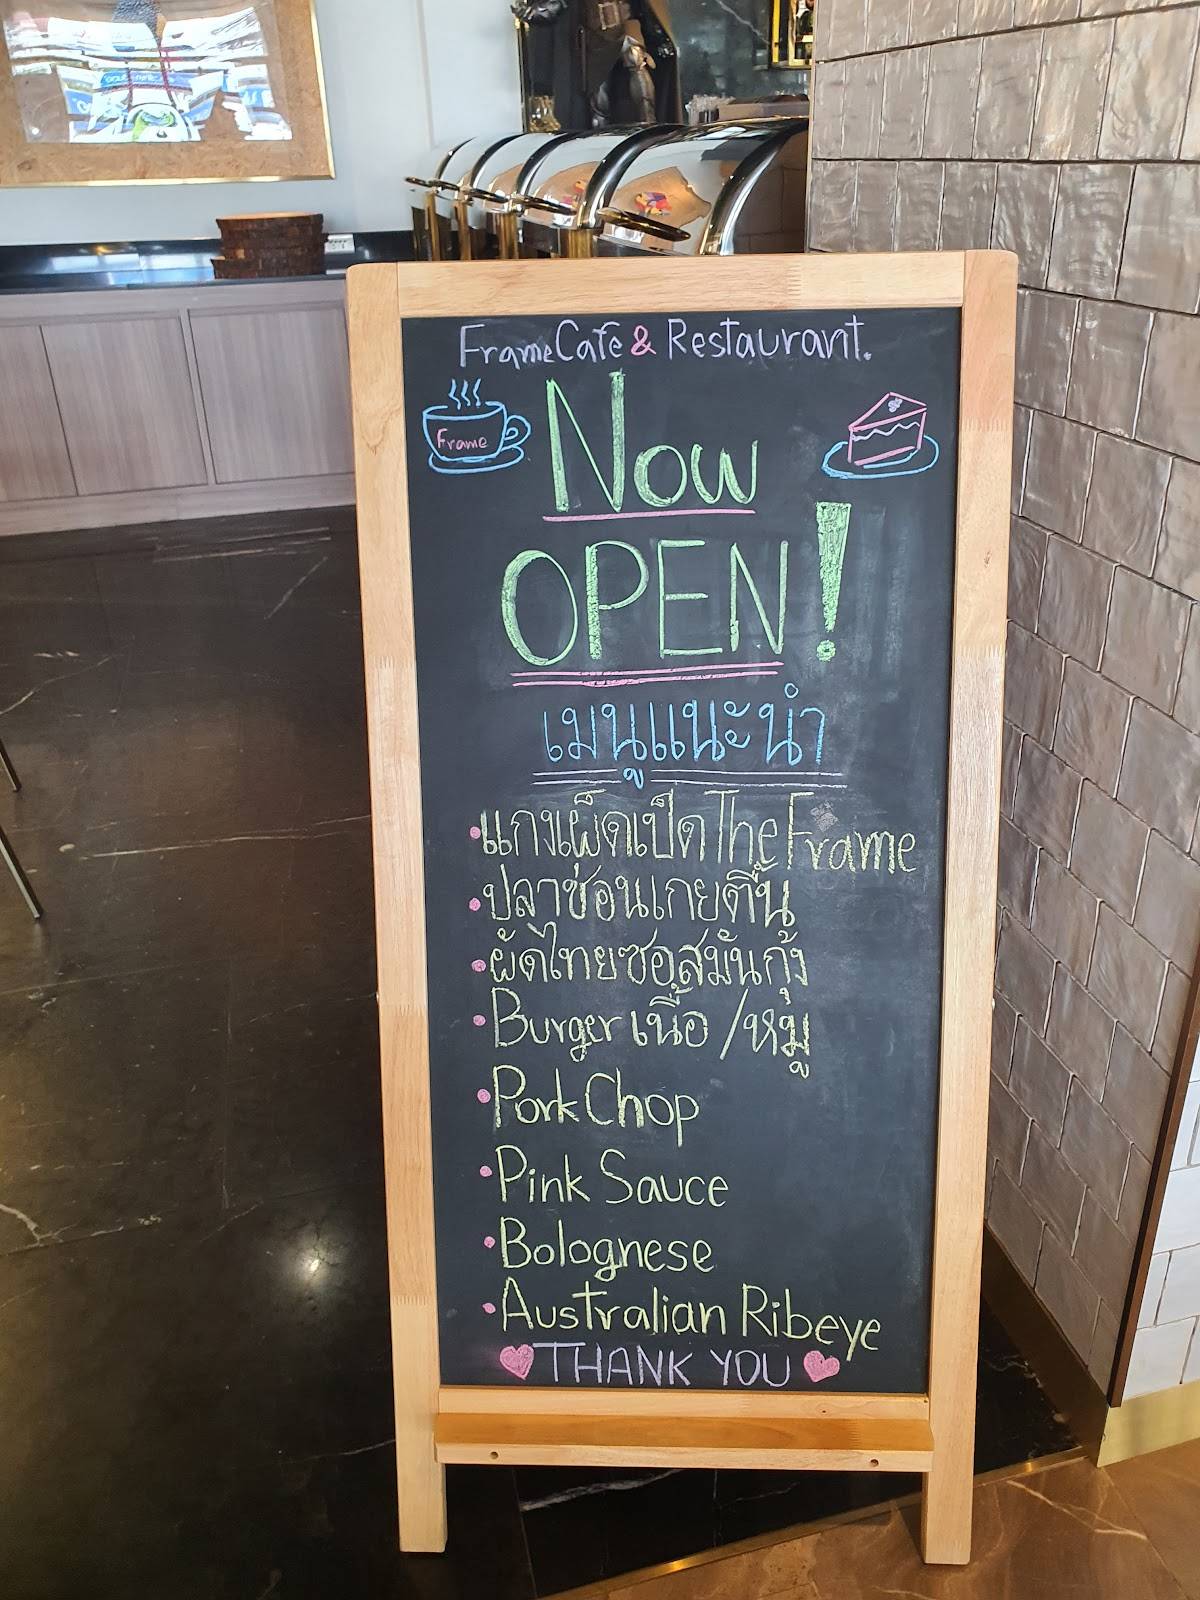 Frame Cafe & Restaurant.
Frame
Now
OPEN!
เมนูแนะนำ
•แกงเผ็ดเป็ด The Frame
•ปลาช่อนเกยตื้น
•ผัดไทยซอสมันกุ้ง
•Burger เนื้อ/หมู
•Pork Chop
•Pink Sauce
•Bolognese
•Australian Ribeye
THANK YOU